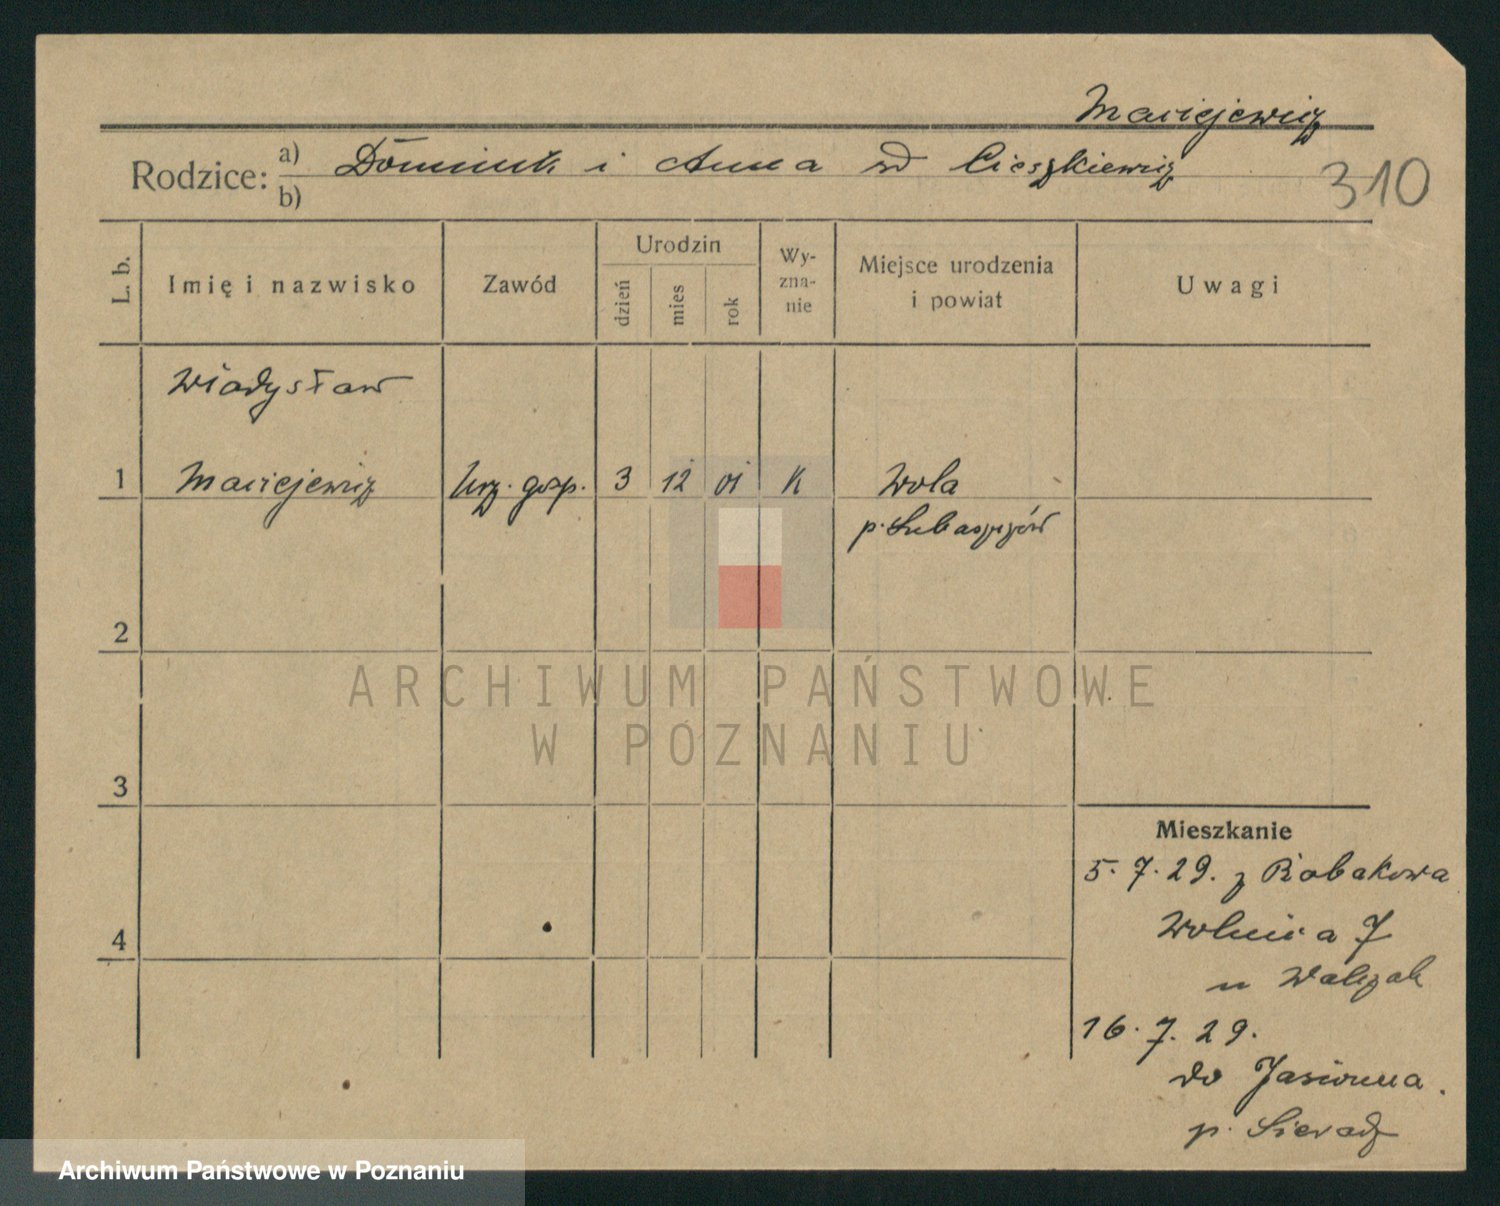 Maciejewicz
Rodzice: a) Dominik i Anna w Cieszkiewicz
b)
310
L. b.
Imię i nazwisko
Zawód
Urodzin
dzień
mies
rok
Wy-
zna-
nie
Miejsce urodzenia
i powiat
Uwagi
Władysław
1 Maciejewicz Urz. gosp. 3 12 01 K Wola
p. Lubaszów
2
3
4
ARCHIWUM PAŃSTWOWE
W POZNANIU
Mieszkanie
5.7.29. z Robakowa
Wolnica 7
u Walczak
16.7.29.
do Jasionna.
p. Sieradz
Archiwum Państwowe w Poznaniu